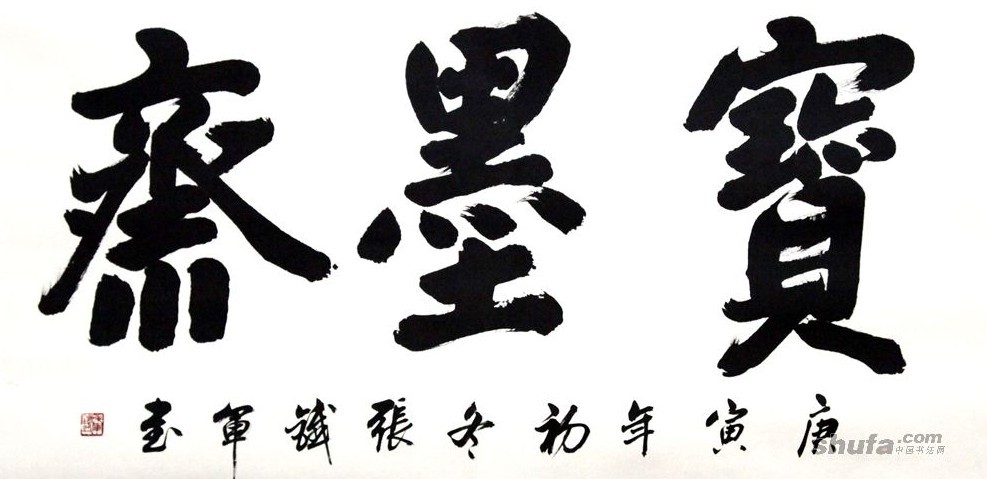 寶墨齋
庚寅年初冬張鐵軍书
shufa.com
中国书法网